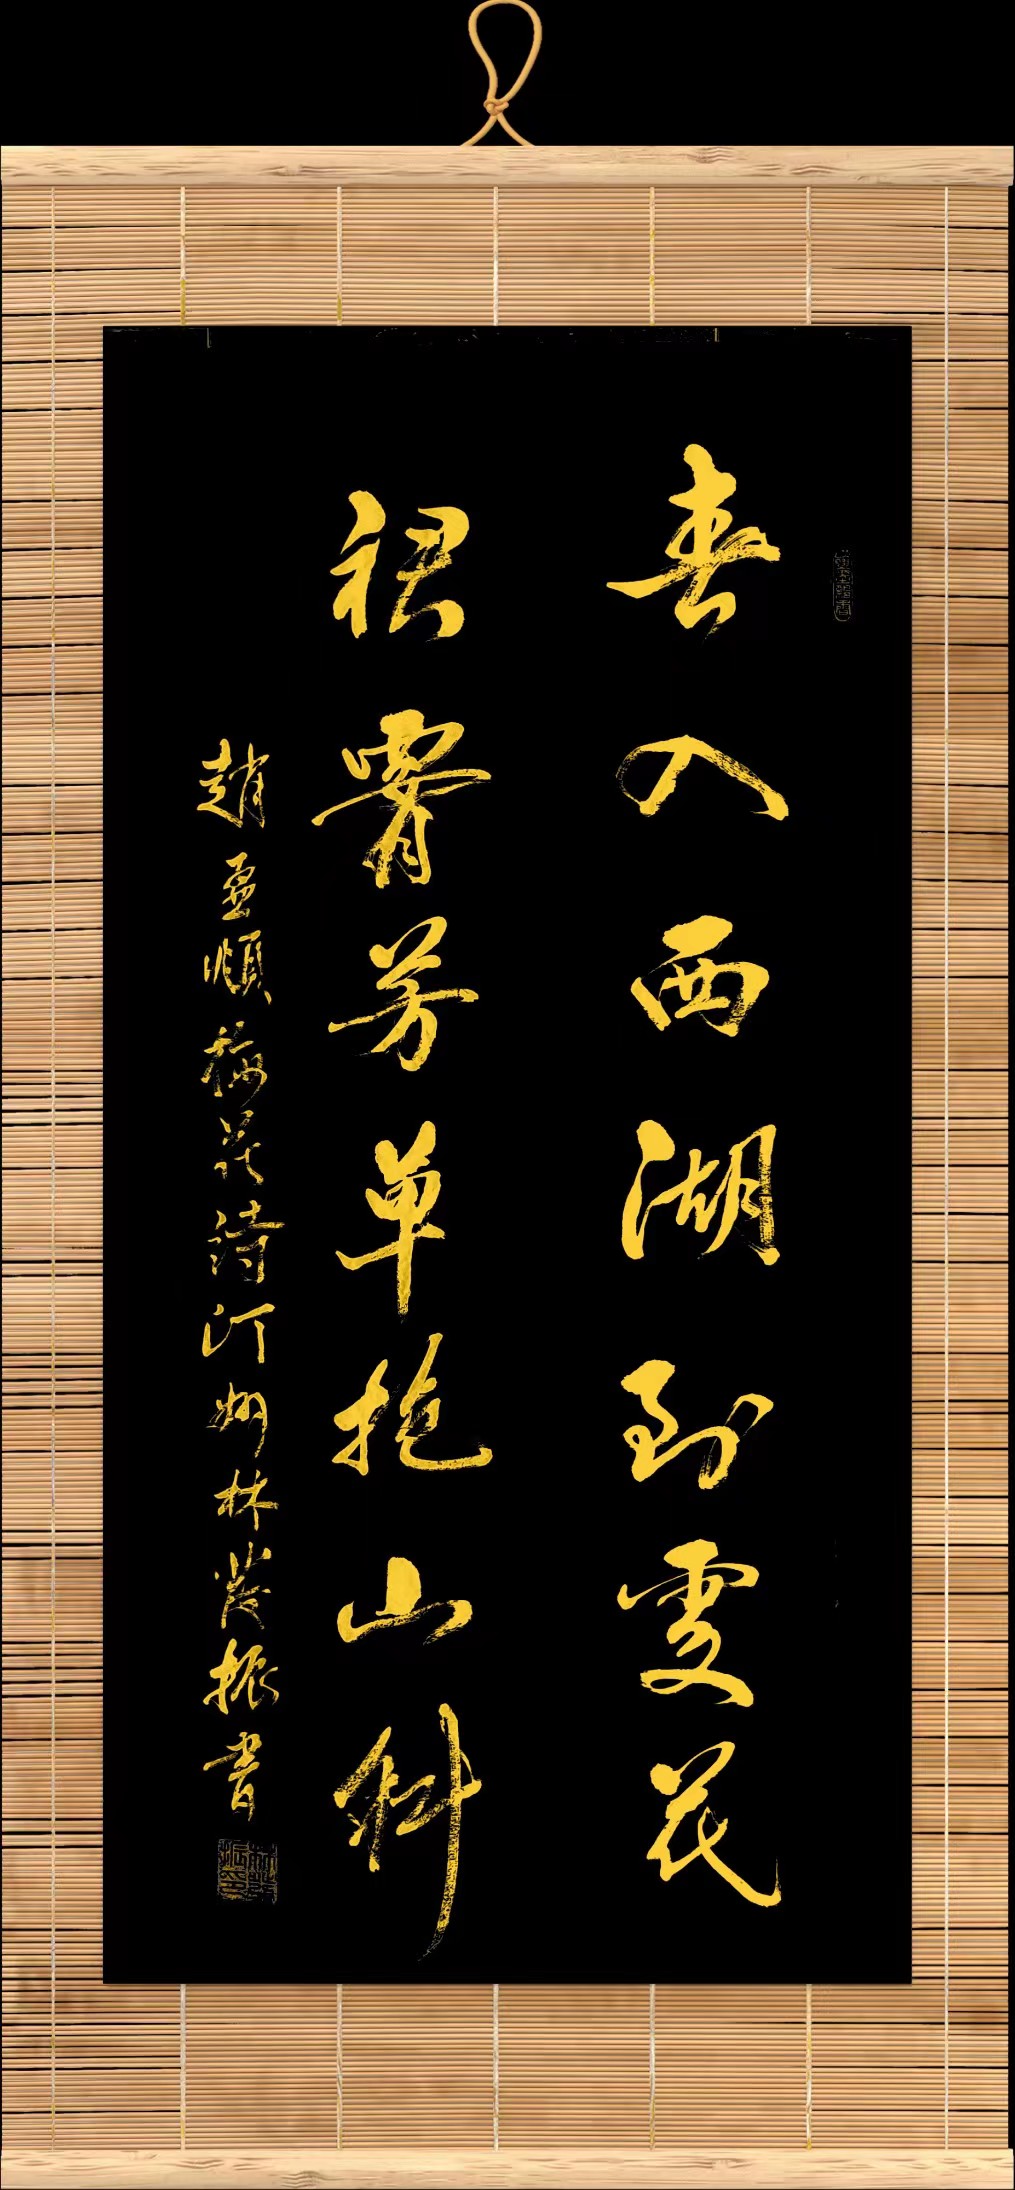 春入西湖到處花
裙腰芳草抱山斜
趙孟頫梅花詩汀州林振書